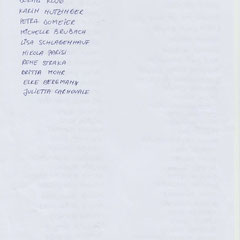 KARIN HUTZINGER
PETRA GUMEIER
MICHELLE BRUBACH
LISA SCHLAGENHAUF
NIKOLA PARISI
RENE STRAKA
BRITTA MOHR
ELKE BERGMANN
JULIETTA CARNOVALE